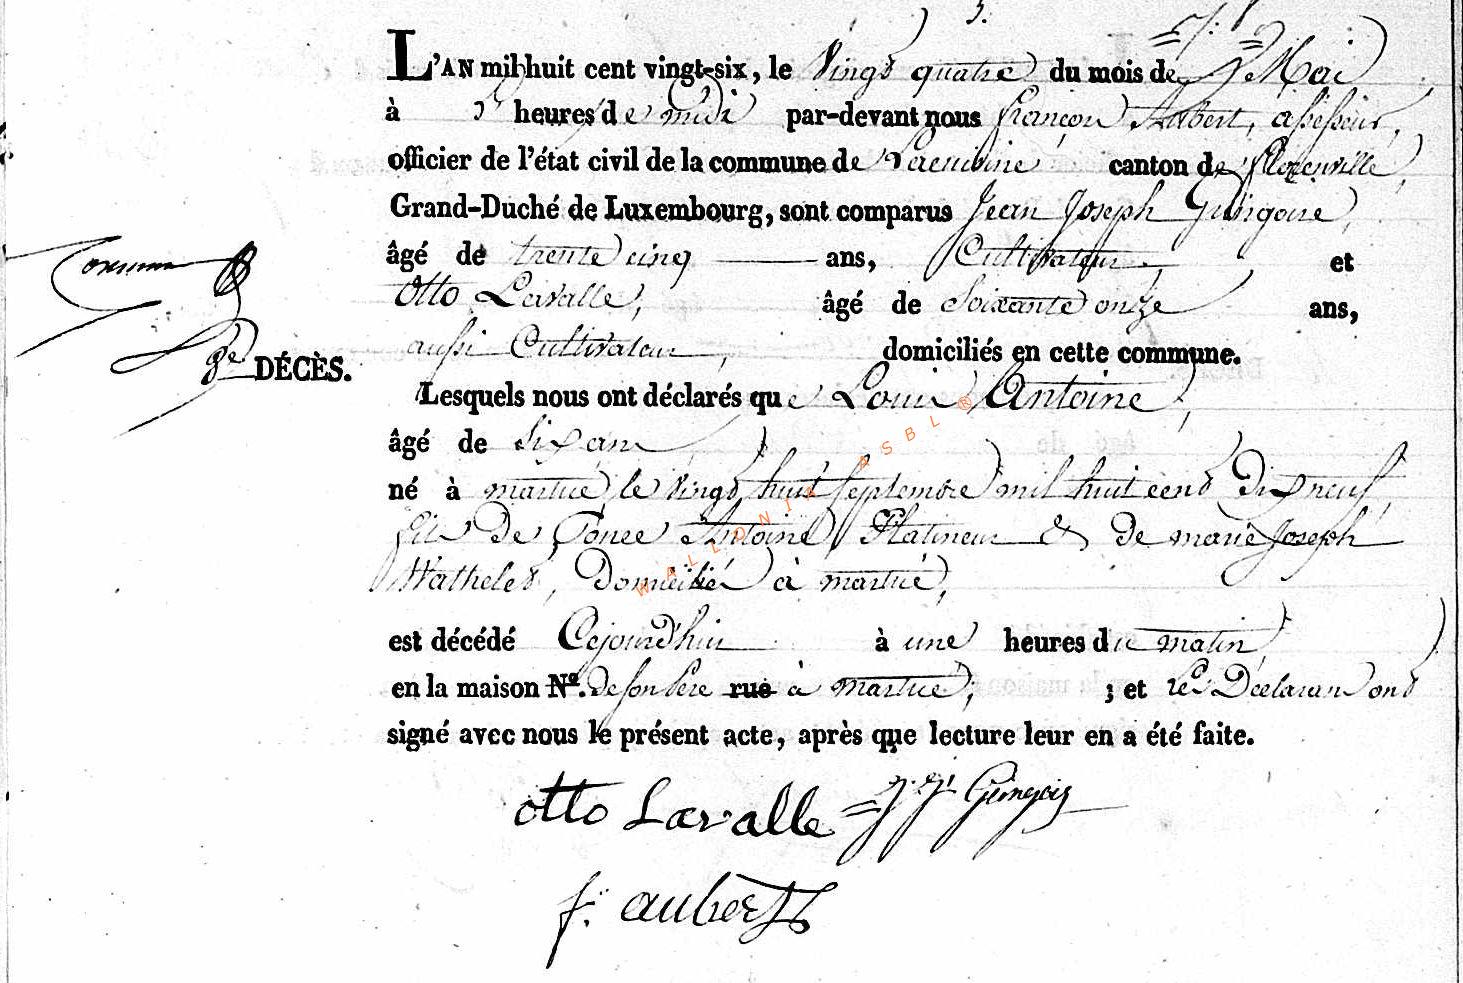 L'AN mil huit cent vingt-six, le Vingt quatre du mois de Mai
à 5 heures de midi par-devant nous françois Aubert, assesseur,
officier de l'état civil de la commune de Lacuisine canton de florenville,
Grand-Duché de Luxembourg, sont comparus Jean Joseph Guingoire,
âgé de trente cinq ans, Cultivateur, et
Otto Lavalle, âgé de Soixante onze ans,
aussi Cultivateur, domiciliés en cette commune.
8e DÉCÈS.
Lesquels nous ont déclarés que Louis Antoine,
âgé de Six ans
né à martué, le vingt huit Septembre mil huit cent Dix neuf,
fils de Ponce Antoine, Platineur & de marie Joseph
Wathelet, Domicilié à martué,
est décédé Cejourd'hui à une heures du matin,
en la maison N°. de son Père rue à martué, ; et les Déclarans ont
signé avec nous le présent acte, après que lecture leur en a été faite.
WALLONIA ASBL ®
otto Lavalle J. J. Guingoir
f: aubert